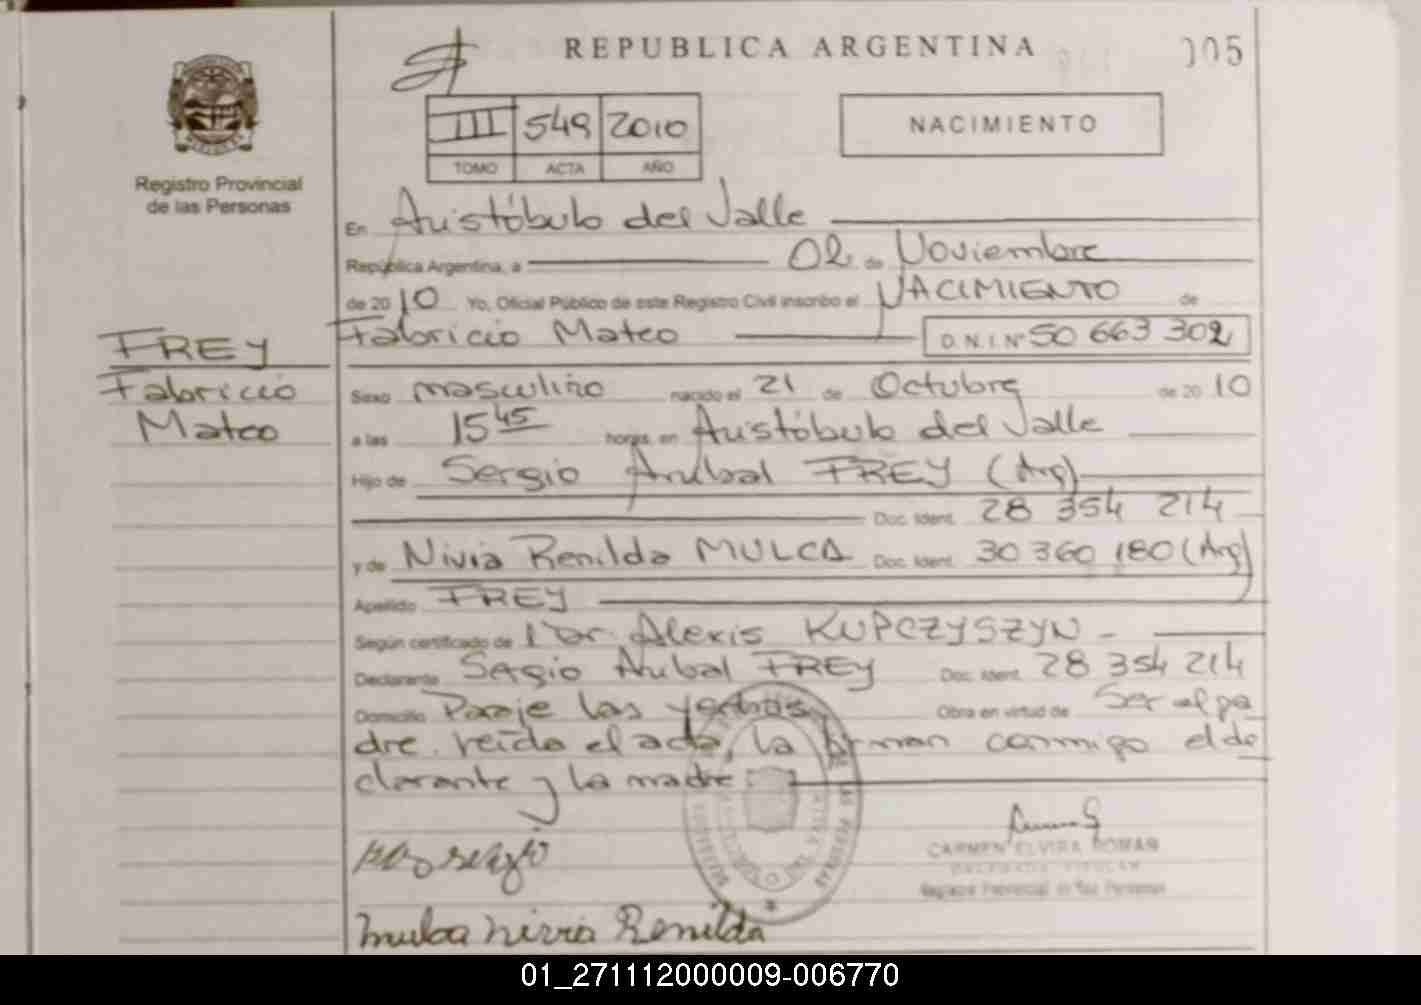 REPUBLICA ARGENTINA
005
III 549 2010
TOMO ACTA AÑO
NACIMIENTO
Registro Provincial
de las Personas
En Aristóbulo del Valle
República Argentina, a 02 de Noviembre
de 2010 Yo, Oficial Público de este Registro Civil inscribo el NACIMIENTO de
Fabricio Mateo D.N.I. Nº 50 663 302
FREY
Fabricio
Mateo
Sexo masculino nacido el 21 de Octubre de 2010
a las 15 45 horas, en Aristóbulo del Valle
Hijo de Sergio Anibal FREY (Arg)
Doc. Ident. 28 354 214
y de Nivia Renilda MULCA Doc. Ident. 30 360 180 (Arg)
Apellido FREY
Según certificado de Dr. Alexis KUPCZYSZYN
Declarante Sergio Anibal FREY Doc. Ident. 28 354 214
Domicilio Paraje las Obra en virtud de Ser el pa
dre. leída el acta, la firman conmigo el de
clarante y la madre.
sergio
CARMEN ELVIRA ROMAN
DELEGADA TITULAR
Registro Provincial de las Personas
mulca nivia Renilda
01_271112000009-006770